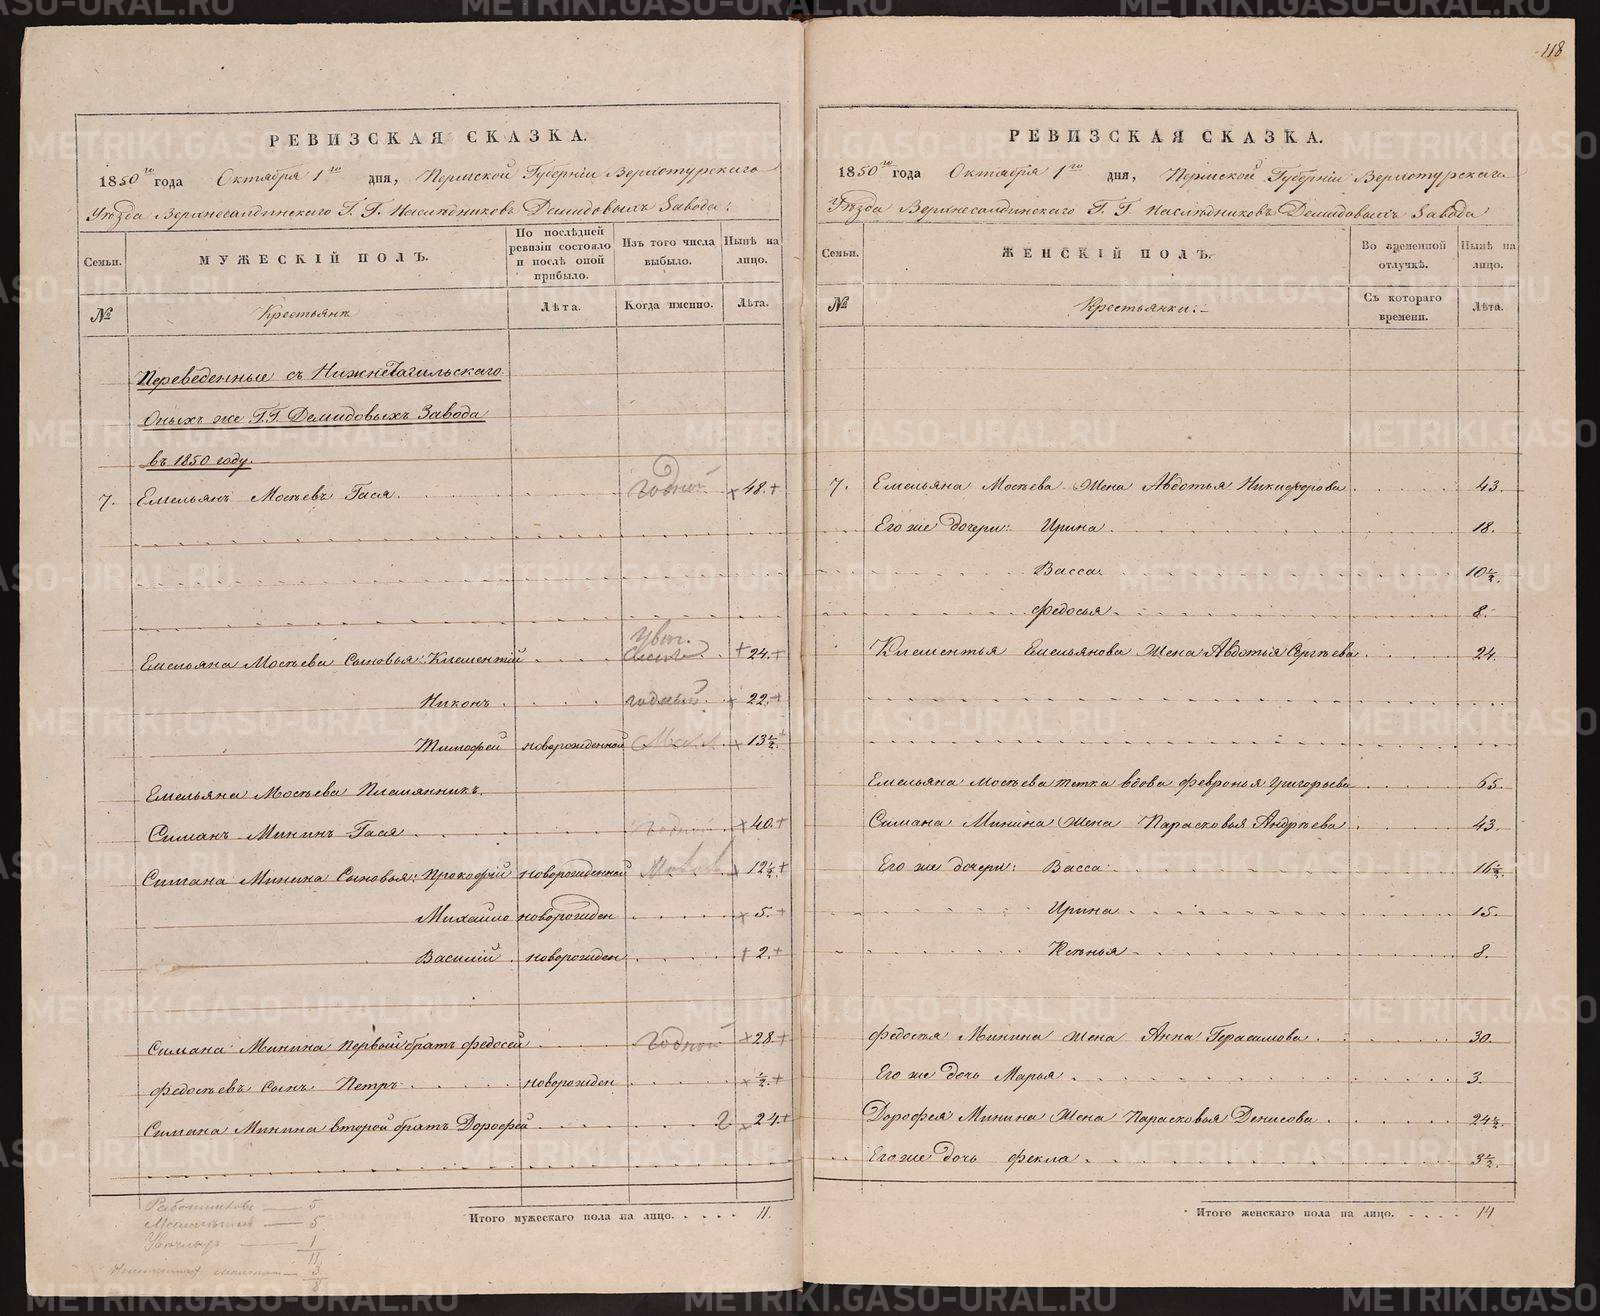 118
РЕВИЗСКАЯ СКАЗКА.
1850го года Октября 1го дня, Пермской Губерніи Верхотурскаго
Уѣзда Верхнесалдинскаго Г. Г. Наслѣдниковъ Демидовыхъ Завода:
Семьи.
МУЖЕСКІЙ ПОЛЪ.
По послѣдней ревизіи состояло и послѣ оной прибыло.
Изъ того числа выбыло.
Нынѣ на лицо.
№
Крестьянъ
Лѣта.
Когда именно.
Лѣта.
Переведенные съ НижнеТагильскаго
Оныхъ же Г. Г. Демидовыхъ Завода
въ 1850 году.
7. Емельянъ Мосѣевъ Гася годный 48.
Емельяна Мосѣева Сыновья: Клементій 24.
Никонъ годный 22.
Тимофей новорожденной 13½
Емельяна Мосѣева Племянникъ
Симанъ Мининъ Гася годной 40.
Симана Минина Сыновья: Прокофій новорожденной 12½
Михайло новорожден 5.
Василій новорожден 2.
Симана Минина первый братъ Федосей годной 28
Федосѣевъ сынъ Петръ новорожден ½
Симана Минина второй братъ Дорофей г. 24
Итого мужескаго пола на лицо. 11.
Работниковъ — 5
— 5
— 1
11
3
8
РЕВИЗСКАЯ СКАЗКА.
1850го года Октября 1го дня, Пермской Губерніи Верхотурскаго
Уѣзда Верхнесалдинскаго Г. Г. Наслѣдниковъ Демидовыхъ Завода
Семьи.
ЖЕНСКІЙ ПОЛЪ.
Во временной отлучкѣ.
Нынѣ на лицо.
№
Крестьянки:
Съ котораго времени.
Лѣта.
7. Емельяна Мосѣева Жена Авдотья Никифорова 43.
Его же дочери: Ирина 18.
Васса 10½.
Федосья 8.
Клементья Емельянова Жена Авдотья Сергѣева 24.
Емельяна Мосѣева тетка вдова Февронья Григорьева 65.
Симана Минина Жена Парасковья Андрѣева 43.
Его же дочери: Васса 16½.
Ирина 15.
Ксѣнья 8.
Федосѣя Минина Жена Анна Герасимова 30.
Его же дочь Марья 3.
Дорофея Минина Жена Парасковья Денисова 24½.
Его же Дочь Фекла 3½.
Итого женскаго пола на лицо. 14
METRIKI.GASO-URAL.RU